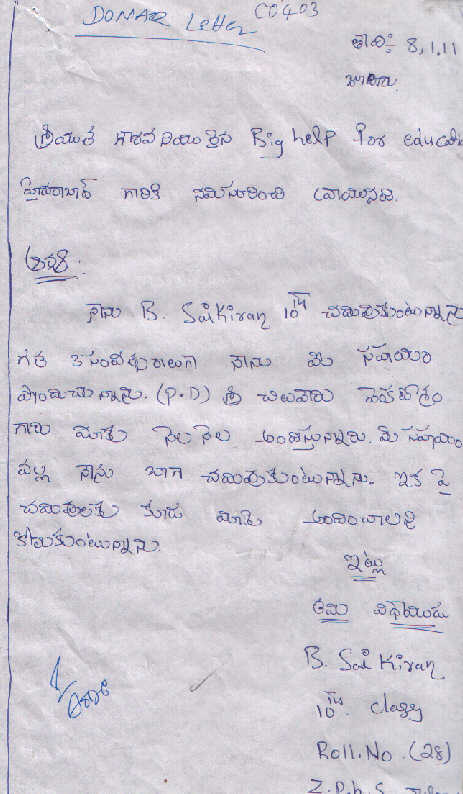 DONAR Letter CO403
తేది: 8.1.11
శ్రీయుత గౌరవనీయులైన Big help For educati
హైదరాబాద్ గారికి నమస్కరించి వ్రాయునది.
నేను B. Sai Kiran 10th చదువుకుంటున్నాను
గత 3 సంవత్సరాలుగా నేను మీ సహాయం
పొందుచున్నాను. (P.D) శ్రీ చిలువారు
గారు మాకు నెల నెల అందిస్తున్నారు. మీ సహాయం
వల్ల నేను బాగా చదువుకుంటున్నాను. ఇక పై
చదువులకు కూడ మాకు అందించాలని
కోరుకుంటున్నాను.
ఇట్లు
తమ విధేయుడు
B. Sai Kiran
10th. Class
Roll.No.(28)
Z.P.h.S